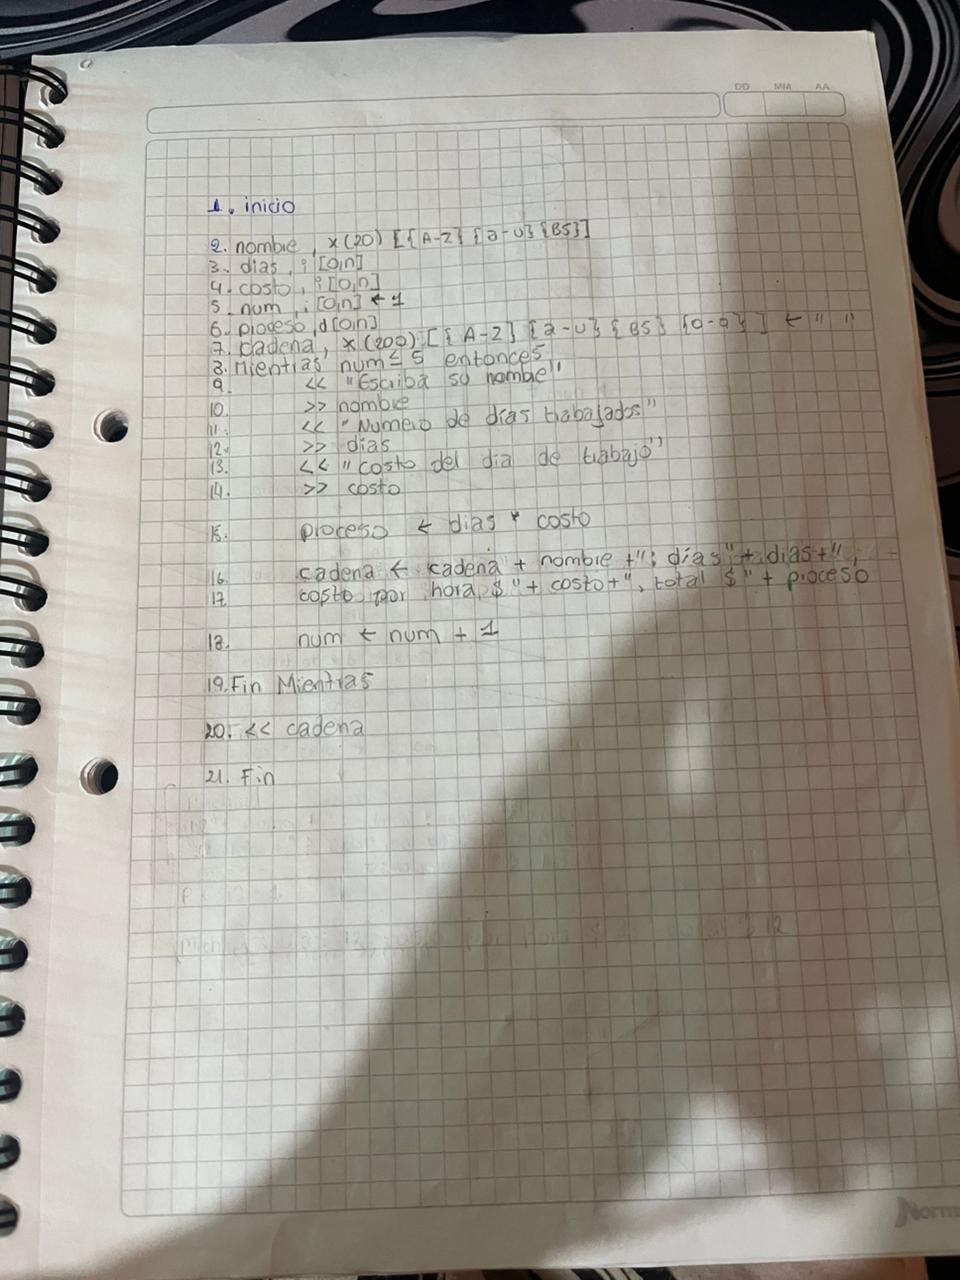 DD MM AA
1. inicio
2. nombre, x(20) [{A-Z} {a-u} {BS}]
3. dias, i [0,n]
4. costo, i [0,n]
5. num, i [0,n] ← 1
6. proceso, d [0,n]
7. cadena, x(200) [{A-Z} {a-u} {BS} {0-9}] ← " "
8. Mientras num ≤ 5 entonces
9. << "Escriba su nombe"
10. >> nombre
11. << "Numero de días trabajados"
12. >> dias
13. << "costo del dia de trabajo"
14. >> costo
15. proceso ← dias * costo
16. cadena ← cadena + nombre +": días"+ dias+",
17. costo por hora $"+ costo+", total $"+ proceso
18. num ← num + 1
19. Fin Mientras
20. << cadena
21. Fin
Norma